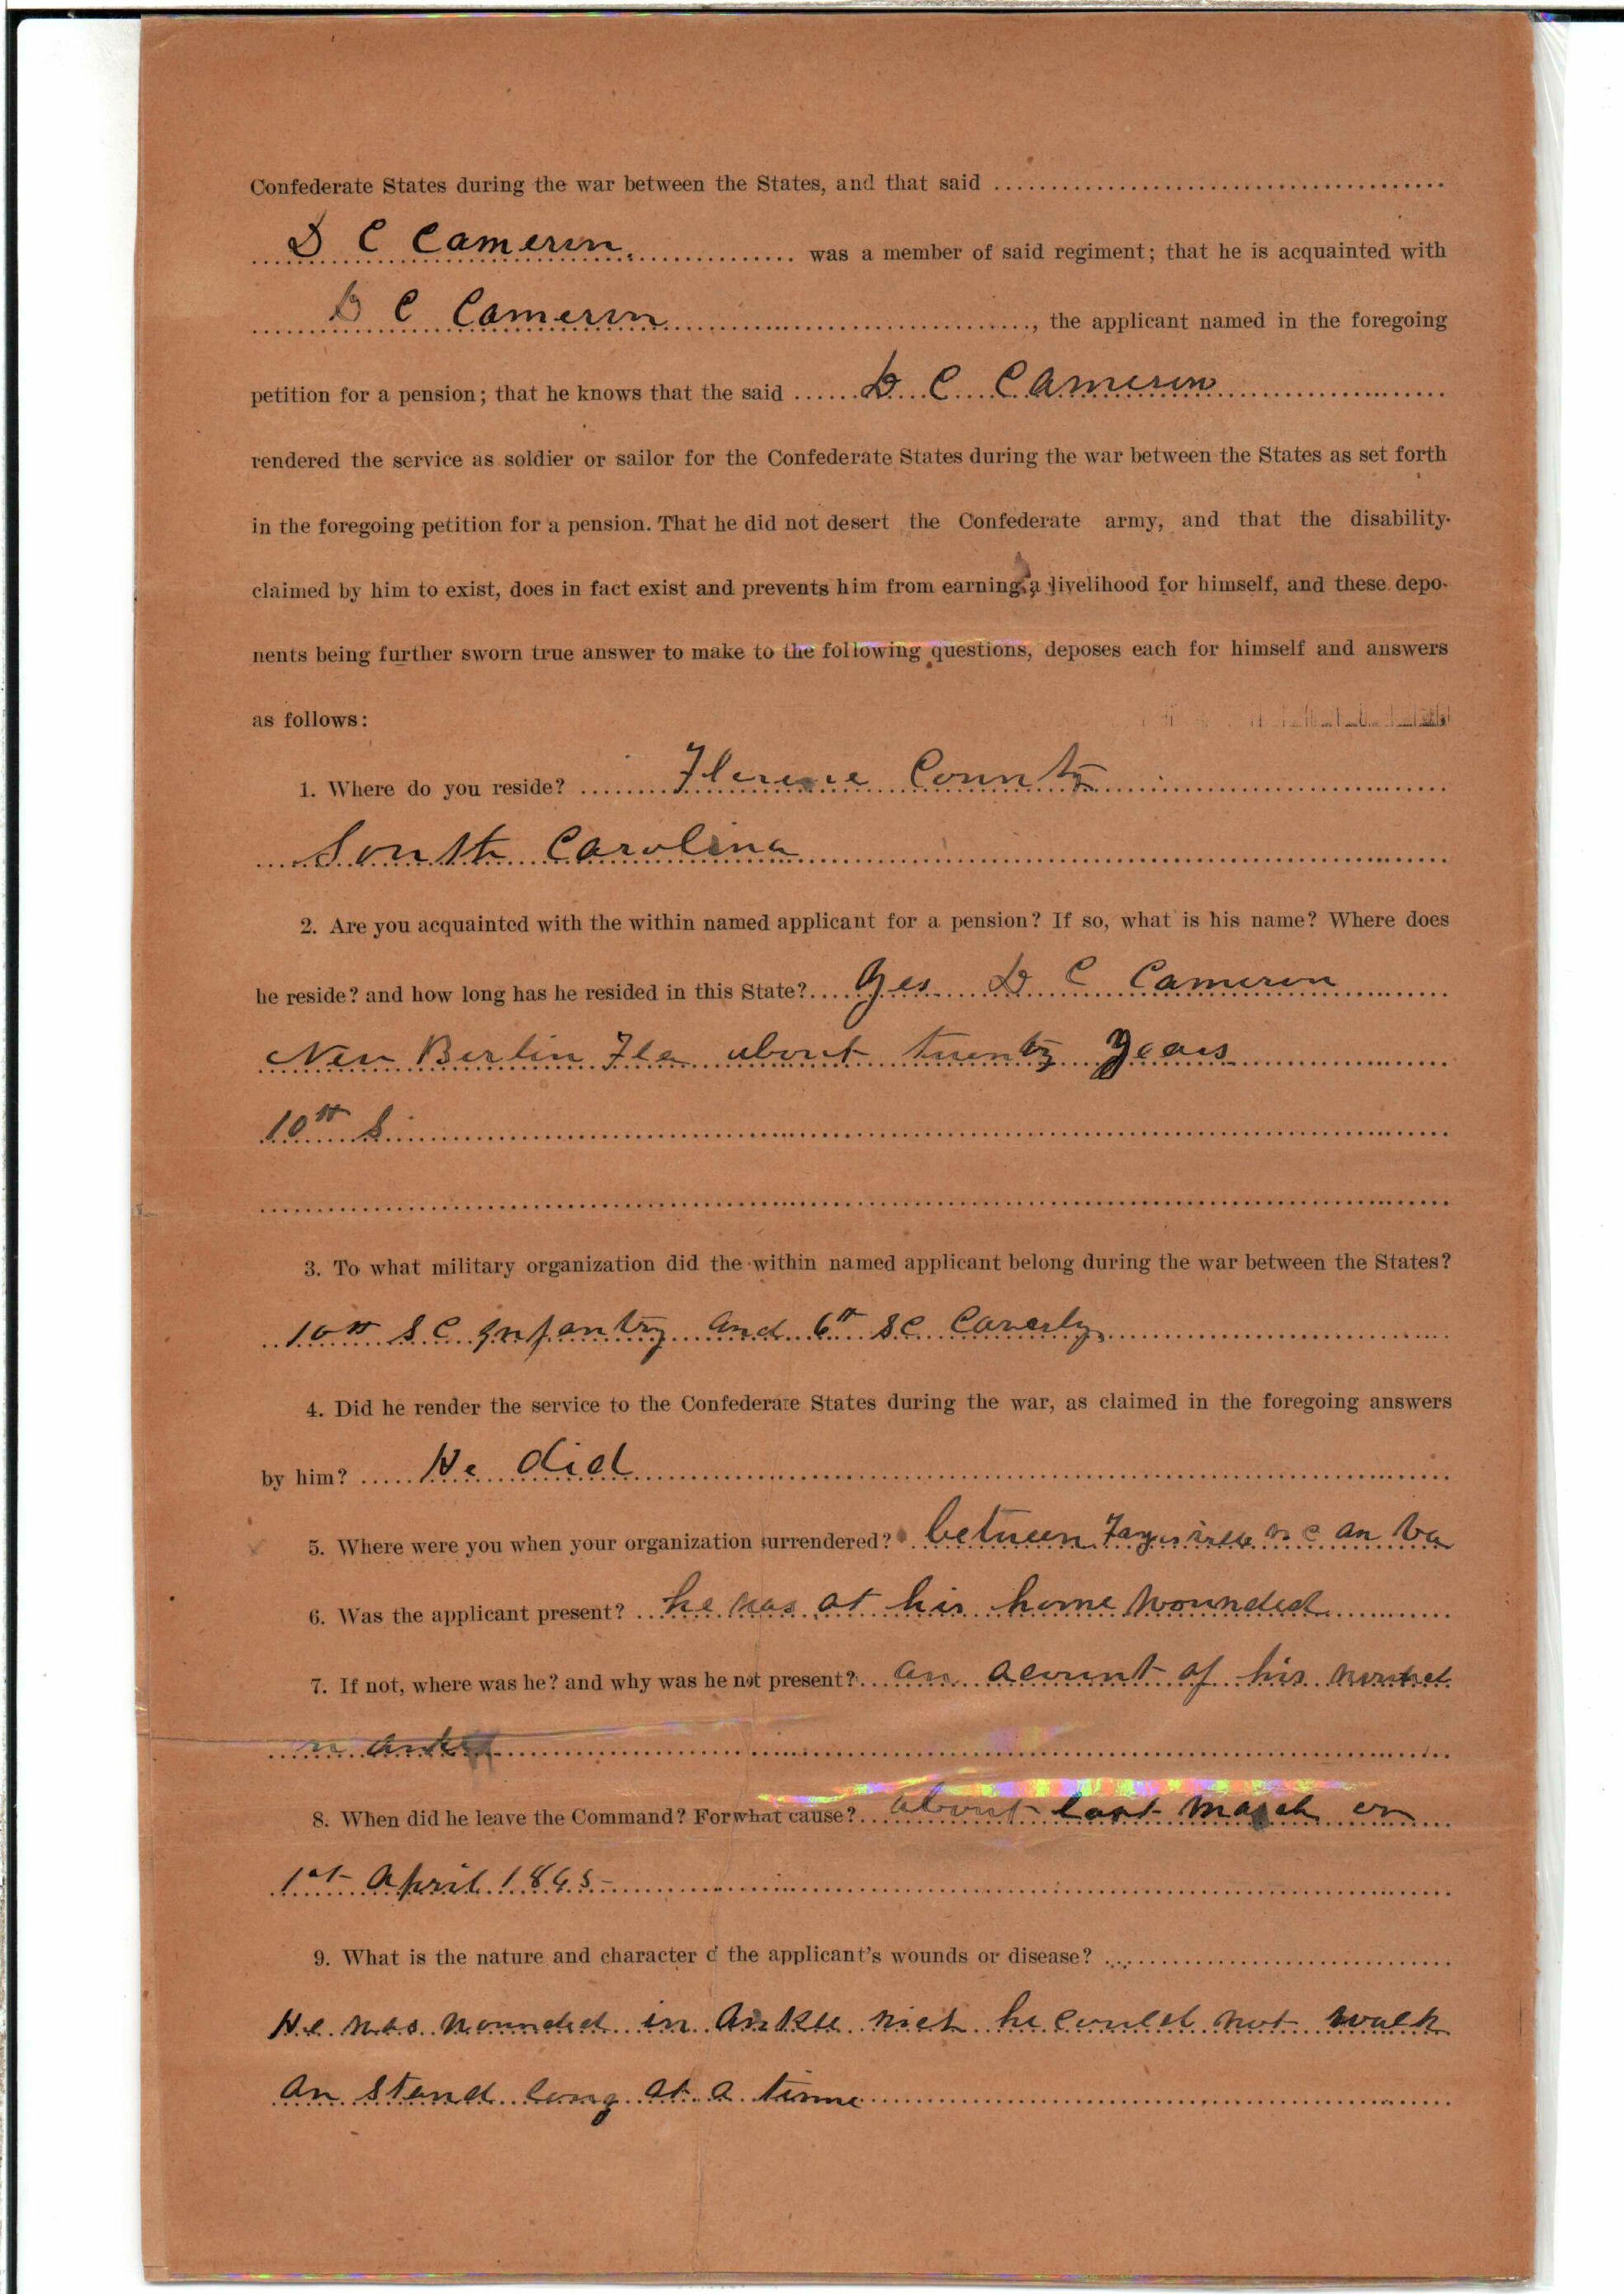 Confederate States during the war between the States, and that said
D C Cameron was a member of said regiment; that he is acquainted with
D C Cameron, the applicant named in the foregoing
petition for a pension; that he knows that the said D C Cameron
rendered the service as soldier or sailor for the Confederate States during the war between the States as set forth
in the foregoing petition for a pension. That he did not desert the Confederate army, and that the disability
claimed by him to exist, does in fact exist and prevents him from earning a livelihood for himself, and these depo-
nents being further sworn true answer to make to the following questions, deposes each for himself and answers
as follows:
1. Where do you reside? Florence County
South Carolina
2. Are you acquainted with the within named applicant for a pension? If so, what is his name? Where does
he reside? and how long has he resided in this State? Yes D C Cameron
New Berlin Fla about twenty years
10th S
3. To what military organization did the within named applicant belong during the war between the States?
10th S C Infantry and 6th S C Caverly
4. Did he render the service to the Confederate States during the war, as claimed in the foregoing answers
by him? He did
5. Where were you when your organization surrendered? between N C an Va
6. Was the applicant present? he was at his home wounded
7. If not, where was he? and why was he not present? on acount of his
8. When did he leave the Command? For what cause? about last March or
1st April 1865
9. What is the nature and character of the applicant's wounds or disease?
He was wounded in Ankle he could not walk
an stand long at a time